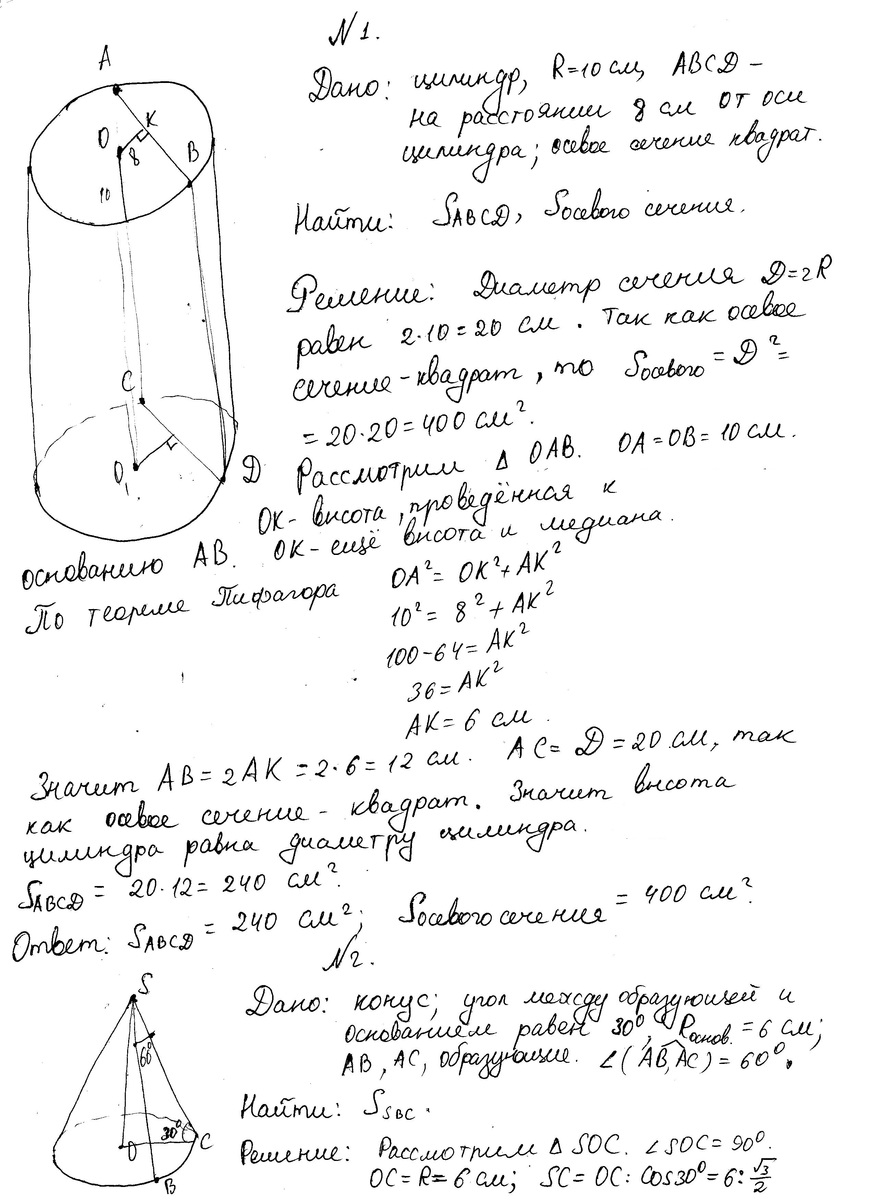 N 1.
Дано: цилиндр, R=10 см, ABCD –
на расстоянии 8 см от оси
цилиндра; осевое сечение квадрат.
Найти: SABCD, Sосевого сечения.
Решение: Диаметр сечения D=2R
равен 2·10=20 см. Так как осевое
сечение-квадрат, то Sосевого = D²=
=20·20=400 см².
Рассмотрим Δ OAB. OA=OB=10 см.
OK- высота, проведённая к
основанию AB. OK- ещё высота и медиана.
По теореме Пифагора OA²= OK²+AK²
10²= 8²+AK²
100-64=AK²
36=AK²
AK= 6 см.
Значит AB=2AK=2·6=12 см. AC= D=20 см, так
как осевое сечение - квадрат. Значит высота
цилиндра равна диаметру цилиндра.
SABCD= 20·12=240 см².
Ответ: SABCD= 240 см²; Sосевого сечения = 400 см².
N2.
Дано: конус; угол между образующей и
основанием равен 30⁰, Rоснов.=6 см;
AB, AC, образующие. ∠(AB,AC)=60⁰.
Найти: SSBC.
Решение: Рассмотрим Δ SOC. ∠SOC=90⁰.
OC=R=6 см; SC=OC:cos30⁰=6:√3/2
A
O
K
8
B
10
C
O₁
D
S
60⁰
30⁰
O
C
B